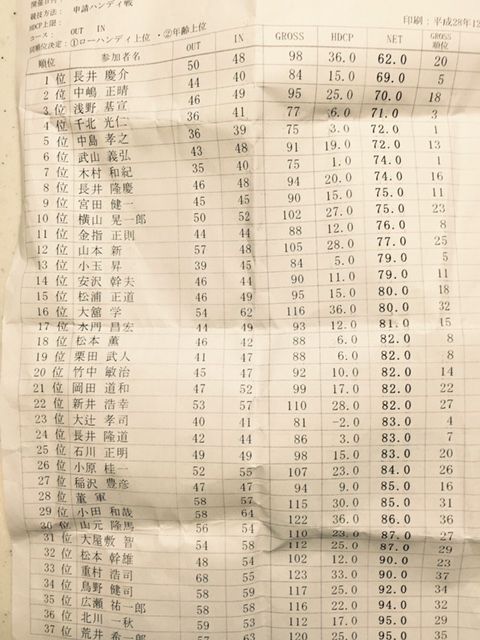 競技方法: 申請ハンディ戦
HDCP上限:
コース: OUT IN
同順位決定: ①ローハンディ上位 ・②年齢上位
印刷: 平成28年12
順位 参加者名 OUT IN GROSS HDCP NET GROSS順位
1 位 長井 慶介 50 48 98 36.0 62.0 20
2 位 中嶋 正晴 44 40 84 15.0 69.0 5
3 位 浅野 基宣 46 49 95 25.0 70.0 18
4 位 千北 光仁 36 41 77 6.0 71.0 3
5 位 中島 孝之 36 39 75 3.0 72.0 1
6 位 武山 義弘 43 48 91 19.0 72.0 13
7 位 木村 和紀 35 40 75 1.0 74.0 1
8 位 長井 隆慶 46 48 94 20.0 74.0 16
9 位 宮田 健一 45 45 90 15.0 75.0 11
10 位 横山 晃一郎 50 52 102 27.0 75.0 23
11 位 金指 正則 44 44 88 12.0 76.0 8
12 位 山本 新 57 48 105 28.0 77.0 25
13 位 小玉 昇 39 45 84 5.0 79.0 5
14 位 安沢 幹夫 46 44 90 11.0 79.0 11
15 位 松浦 正道 46 49 95 15.0 80.0 18
16 位 大舘 学 54 62 116 36.0 80.0 32
17 位 水門 昌宏 44 49 93 12.0 81.0 15
18 位 松本 薫 46 42 88 6.0 82.0 8
19 位 栗田 武人 41 47 88 6.0 82.0 8
20 位 竹中 敏治 45 47 92 10.0 82.0 14
21 位 岡田 道和 47 52 99 17.0 82.0 22
22 位 新井 浩幸 53 57 110 28.0 82.0 27
23 位 大辻 孝司 40 41 81 -2.0 83.0 4
24 位 長井 隆道 42 44 86 3.0 83.0 7
25 位 石川 正明 49 49 98 15.0 83.0 20
26 位 小原 桂一 52 55 107 23.0 84.0 26
27 位 稲沢 豊彦 47 47 94 9.0 85.0 16
28 位 董 軍 58 57 115 30.0 85.0 31
29 位 小田 和哉 58 64 122 36.0 86.0 36
30 位 山元 隆馬 56 54 110 23.0 87.0 27
31 位 大屋敷 智 54 58 112 25.0 87.0 29
32 位 松本 幹雄 48 54 102 12.0 90.0 23
33 位 重村 浩司 68 55 123 33.0 90.0 37
34 位 鳥野 健司 58 59 117 25.0 92.0 34
35 位 広瀬 祐一郎 58 58 116 22.0 94.0 32
36 位 北川 一秋 59 53 112 17.0 95.0 29
37 位 荒井 希一郎 57 63 120 25.0 95.0 35